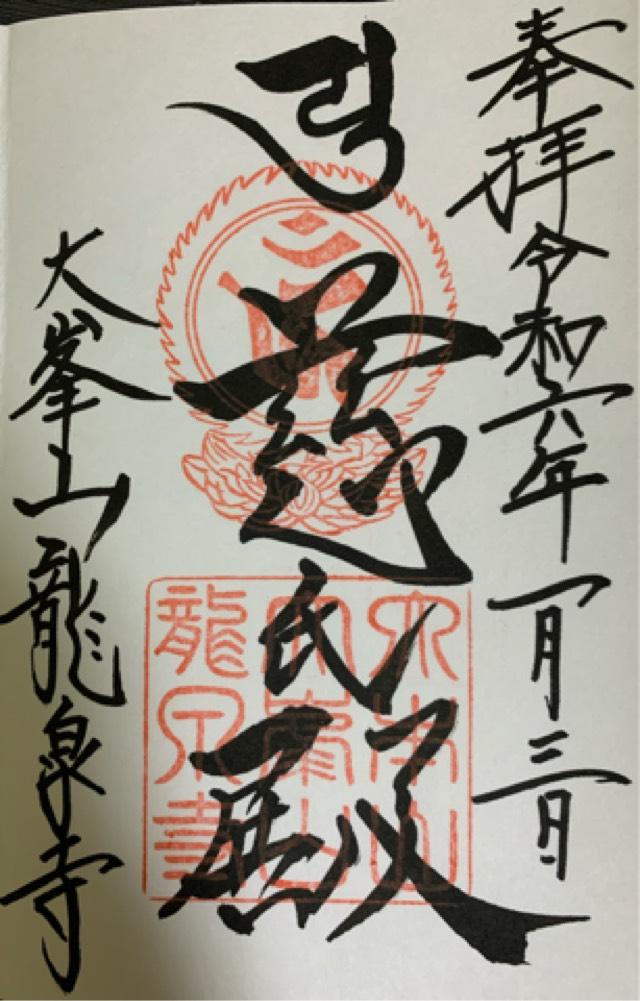 奉拝 令和六年一月三日
慈氏殿
大峯山龍泉寺
大本山
大峯山
龍泉寺